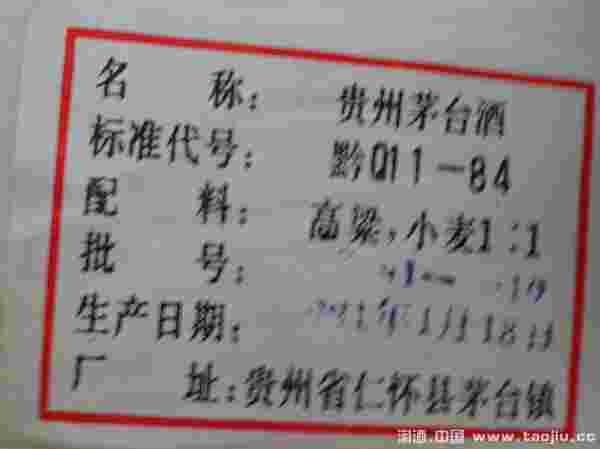 名 称: 贵州茅台酒
标准代号: 黔Q11-84
配 料: 高粱,小麦1:1
批 号:
生产日期:
厂 址: 贵州省仁怀县茅台镇
淘酒.中国 www.taojiu.cc